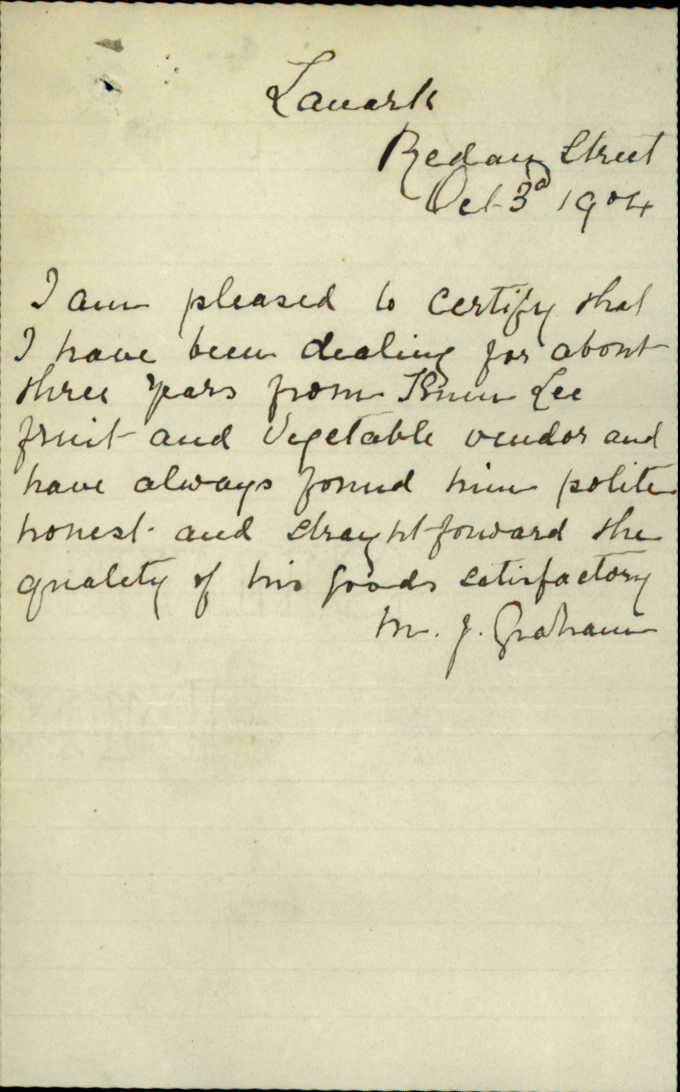 Lanark
Redan Street
Oct 3d 1904
I am pleased to certify that
I have been dealing for about
three years from Lee
fruit and Vegetable vendor and
have always found him polite
honest and straghtforward the
quality of his goods satisfactory
M. J. Graham